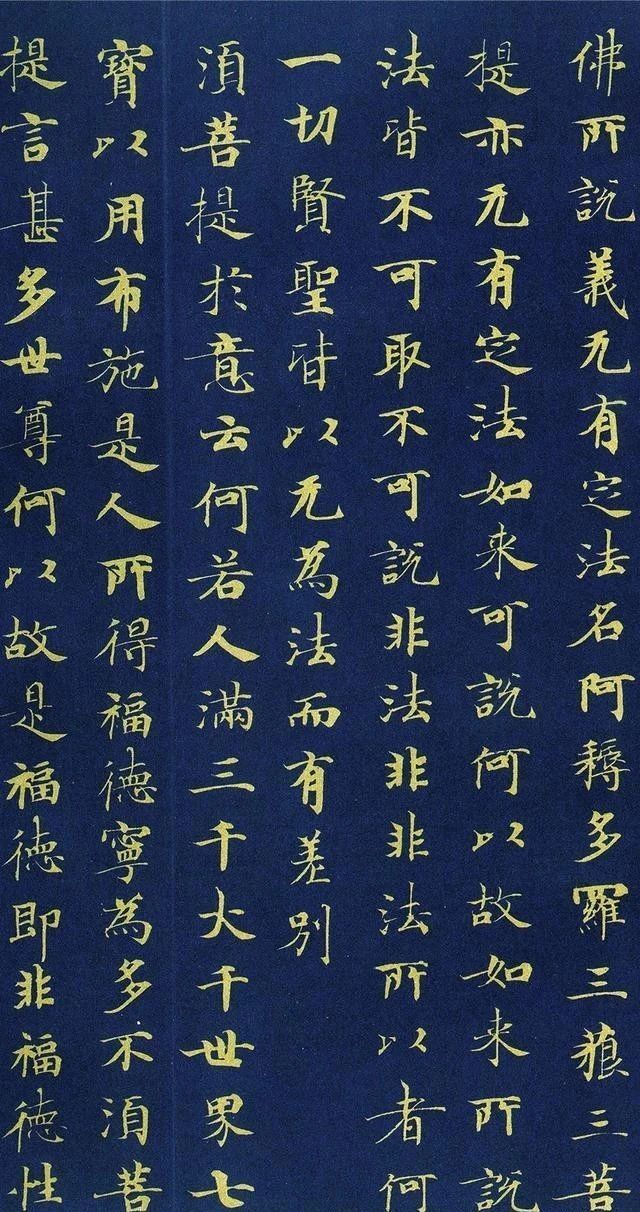 佛所說義无有定法名阿耨多羅三藐三菩
提亦无有定法如来可說何以故如来所說
法皆不可取不可說非法非非法所以者何
一切賢聖皆以无為法而有差別
須菩提於意云何若人滿三千大千世界七
寶以用布施是人所得福德寧為多不須菩
提言甚多世尊何以故是福德即非福德性